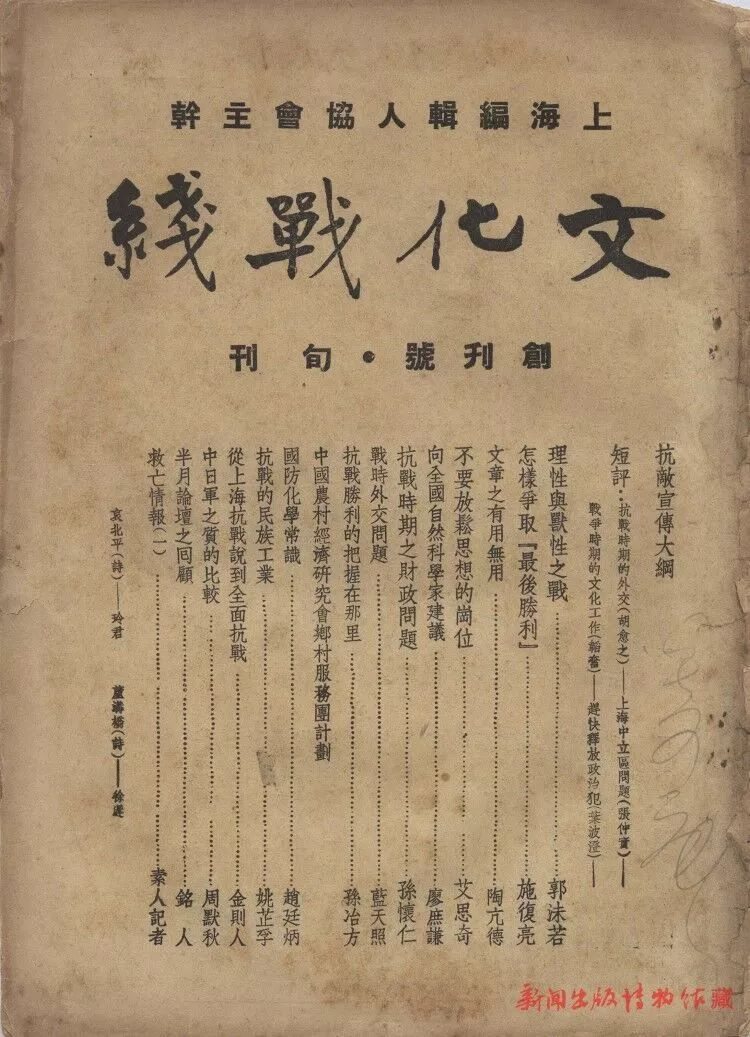 上海編輯人協會主幹
文化戰綫
創刊號・旬刊
抗敵宣傳大綱
短評：抗戰時期的外交(胡愈之)——上海中立區問題(張仲實)——
戰爭時期的文化工作(韜奮)——趕快釋放政治犯(葉波澄)——
理性與獸性之戰……郭沫若
怎樣爭取『最後勝利』……施復亮
文章之有用無用……陶亢德
不要放鬆思想的崗位……艾思奇
向全國自然科學家建議……廖庶謙
抗戰時期之財政問題……孫懷仁
戰時外交問題……藍天照
抗戰勝利的把握在那里……孫冶方
中國農村經濟研究會鄉村服務團計劃
國防化學常識……趙廷炳
抗戰的民族工業……姚芷孚
從上海抗戰說到全面抗戰……金則人
中日軍之質的比較……周默秋
半月論壇之回顧……銘人
救亡情報(一)……素人記者
哀北平(詩)——玲君
蘆溝橋(詩)——徐遲
新闻出版博物馆藏